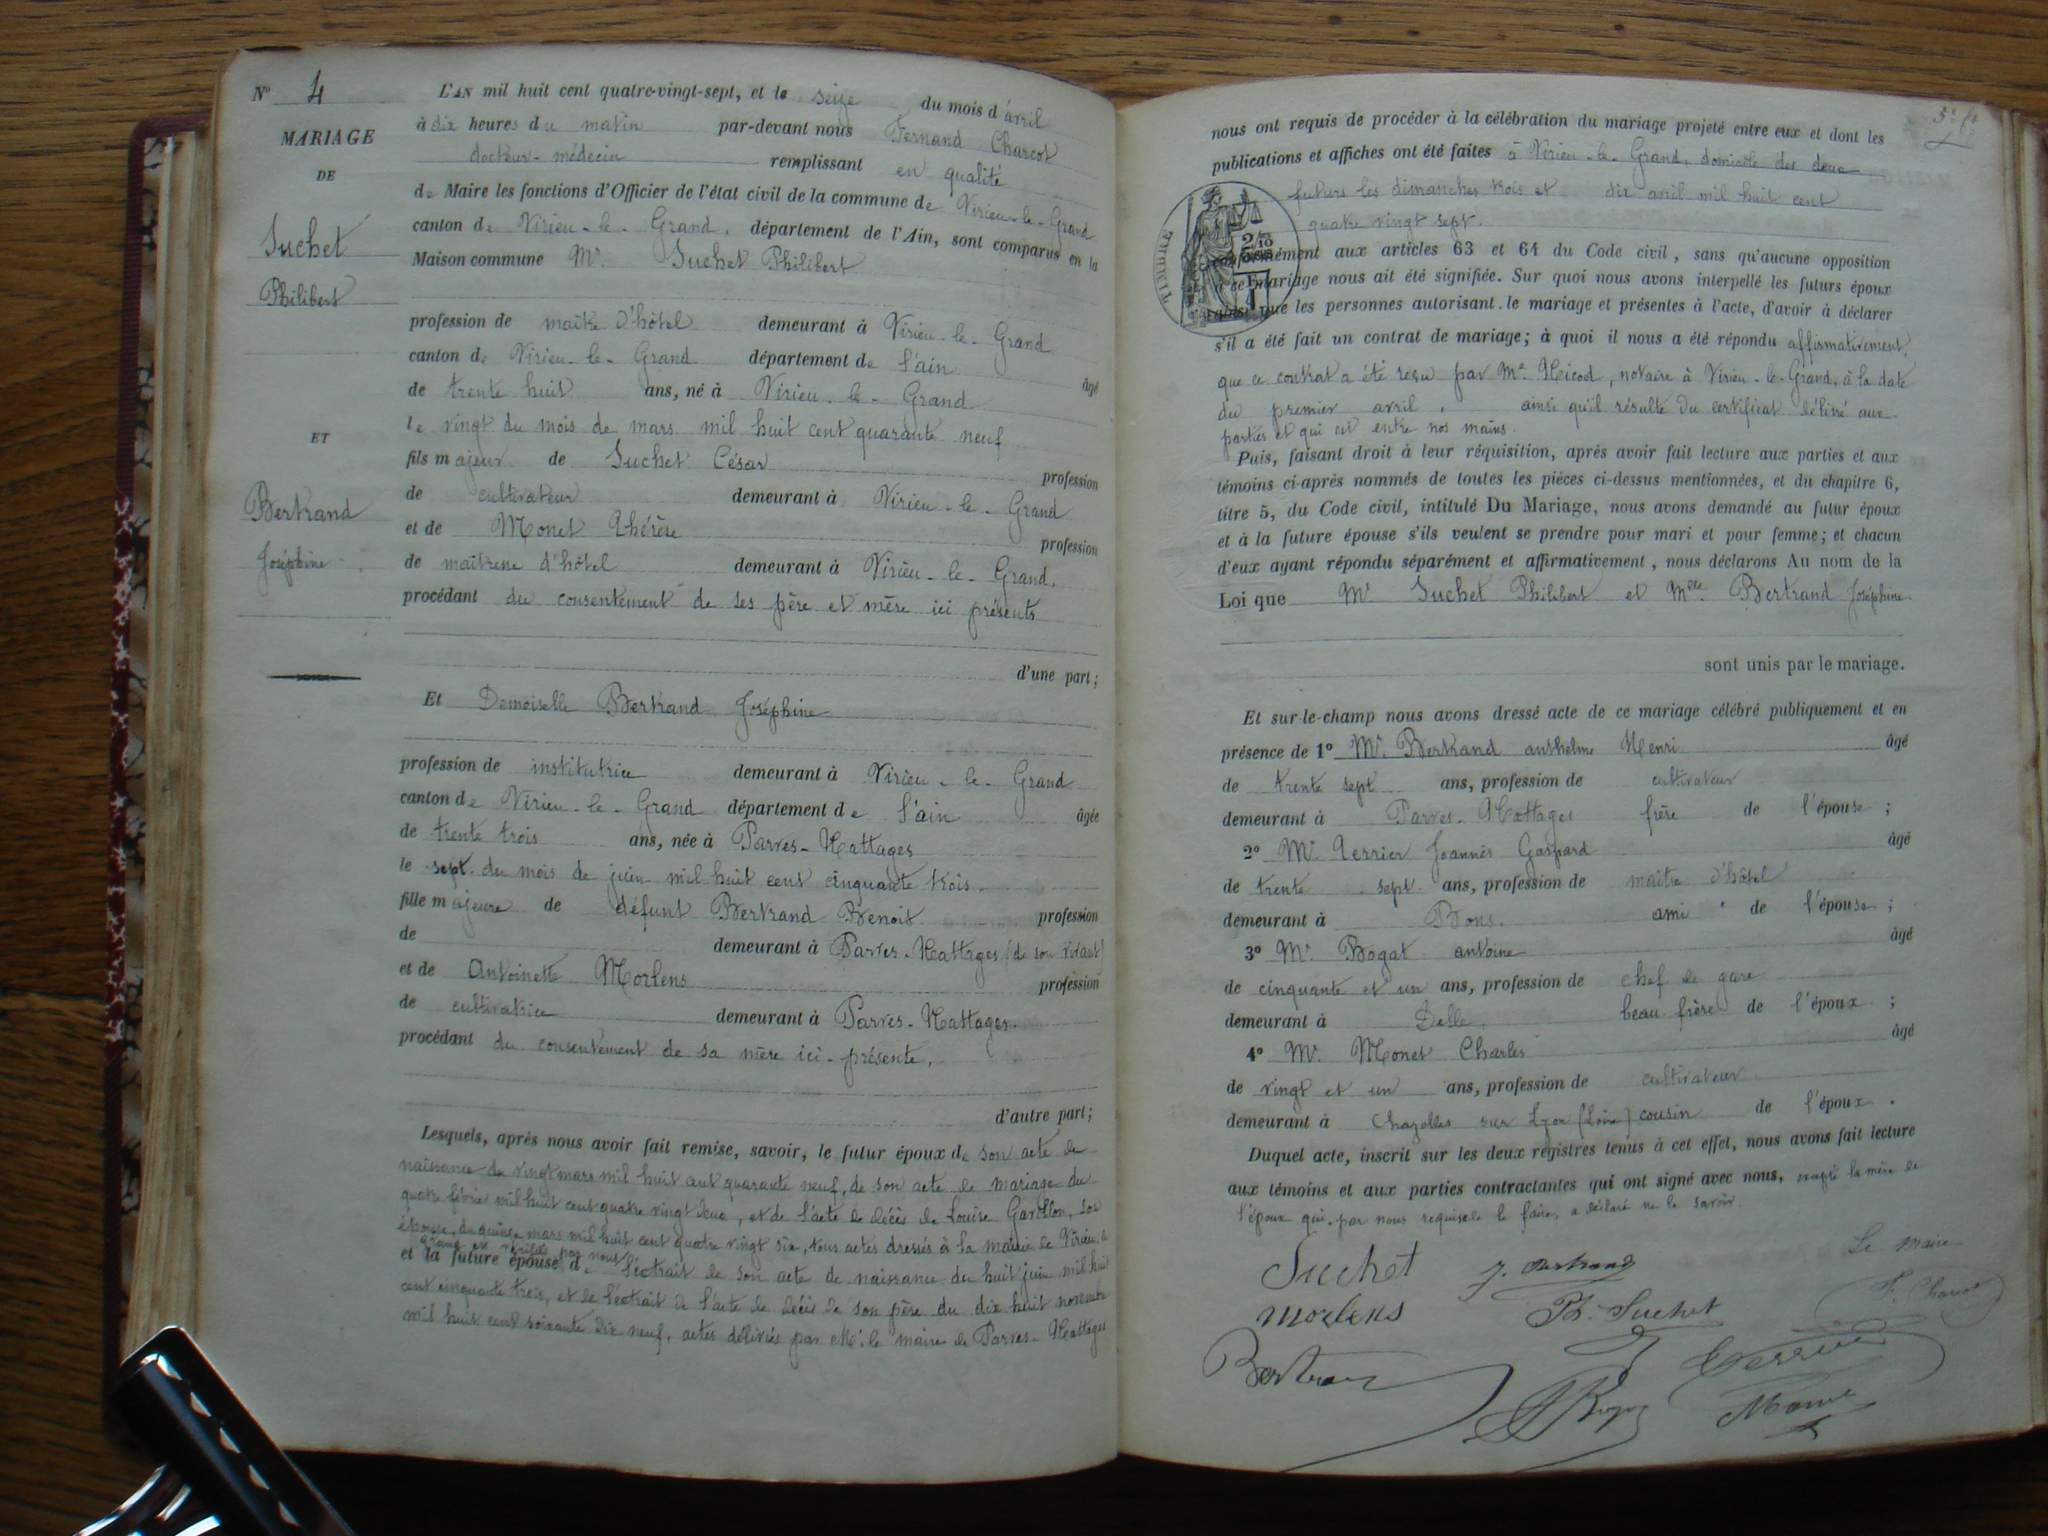 N° 4
MARIAGE
DE
Suchet
Philibert
ET
Bertrand
Joséphine
L'AN mil huit cent quatre-vingt-sept, et le seize du mois d'avril
à dix heures du matin par-devant nous Fernand Charcot
docteur-médecin remplissant en qualité
de Maire les fonctions d'Officier de l'état civil de la commune de Virieu-le-Grand
canton de Virieu-le-Grand, département de l'Ain, sont comparus en la
Maison commune Mr. Suchet Philibert
profession de maître d'hôtel demeurant à Virieu-le-Grand
canton de Virieu-le-Grand département de l'ain âgé
de trente huit ans, né à Virieu-le-Grand
le vingt du mois de mars mil huit cent quarante neuf
fils majeur de Suchet César profession
de cultivateur demeurant à Virieu-le-Grand
et de Monet Thérèse profession
de maîtresse d'hôtel demeurant à Virieu-le-Grand.
procédant du consentement de ses père et mère ici présents
d'une part;
Et Demoiselle Bertrand Joséphine
profession de institutrice demeurant à Virieu-le-Grand
canton de Virieu-le-Grand département de l'ain âgée
de trente trois ans, née à Parves-Nattages
le sept du mois de juin mil huit cent cinquante trois.
fille majeure de défunt Bertrand Benoit profession
de demeurant à Parves-Nattages (de son vivant)
et de Antoinette Morlens profession
de cultivatrice demeurant à Parves-Nattages.
procédant du consentement de sa mère ici-présente,
d'autre part;
Lesquels, après nous avoir fait remise, savoir, le futur époux de son acte de
naissance du vingt mars mil huit cent quarante neuf, de son acte de mariage du
quatre février mil huit cent quatre vingt deux, et de l'acte de décès de Louise Garollon, son
épouse, du quinze mars mil huit cent quatre vingt six, tous actes dressés à la mairie de Virieu-le
Grand et vérifiés par nous
et la future épouse de l'extrait de son acte de naissance du huit juin mil huit
cent cinquante trois, et de l'extrait de l'acte de décès de son père du dix huit novembre
mil huit cent soixante dix neuf, actes délivrés par Mr. le maire de Parves-Nattages
nous ont requis de procéder à la célébration du mariage projeté entre eux et dont les
publications et affiches ont été faites à Virieu-le-Grand, domicile des deux
futurs les dimanches trois et dix avril mil huit cent
quatre vingt sept.
TIMBRE
2/10
conformément aux articles 63 et 64 du Code civil, sans qu'aucune opposition
à ce mariage nous ait été signifiée. Sur quoi nous avons interpellé les futurs époux
ainsi que les personnes autorisant le mariage et présentes à l'acte, d'avoir à déclarer
s'il a été fait un contrat de mariage; à quoi il nous a été répondu affirmativement,
que ce contrat a été reçu par Me. notaire à Virieu-le-Grand, à la date
du premier avril, ainsi qu'il résulte du certificat délivré aux
parties et qui est entre nos mains.
Puis, faisant droit à leur réquisition, après avoir fait lecture aux parties et aux
témoins ci-après nommés de toutes les pièces ci-dessus mentionnées, et du chapitre 6,
titre 5, du Code civil, intitulé Du Mariage, nous avons demandé au futur époux
et à la future épouse s'ils veulent se prendre pour mari et pour femme; et chacun
d'eux ayant répondu séparément et affirmativement, nous déclarons Au nom de la
Loi que Mr Suchet Philibert et Mlle Bertrand Joséphine
sont unis par le mariage.
Et sur-le-champ nous avons dressé acte de ce mariage célébré publiquement et en
présence de 1° Mr. Bertrand anthelme Henri âgé
de trente sept ans, profession de cultivateur
demeurant à Parves-Nattages frère de l'épouse;
2° Mr. Terrier Joannès Gaspard âgé
de trente sept ans, profession de maître d'hôtel
demeurant à Bons. ami de l'épouse;
3° Mr. Bogat antoine âgé
de cinquante et un ans, profession de chef de gare
demeurant à Delle. beau-frère de l'époux;
4° Mr. Monet Charles âgé
de vingt et un ans, profession de cultivateur
demeurant à Chazelles sur Lyon (Loire) cousin de l'époux.
Duquel acte, inscrit sur les deux registres tenus à cet effet, nous avons fait lecture
aux témoins et aux parties contractantes qui ont signé avec nous, excepté la mère de
l'époux qui, par nous requise de le faire, a déclaré ne le savoir.
Suchet J. Bertrand Le Maire
Morlens Ph. Suchet F. Charcot
Bertrand Terrier
Monet